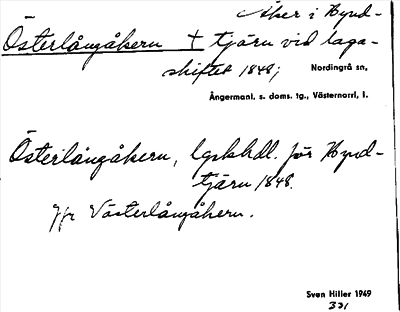 Åker i Kynd-
Österlångåkern + tjärn vid laga-
skiftet 1848; Nordingrå sn.
Ångermanl. s. doms. tg., Västernorrl. l.
Österlångåkern, lgskhdl. för Kynd-
tjärn 1848.
Jfr Västerlångåkern.
Sven Hiller 1949
331